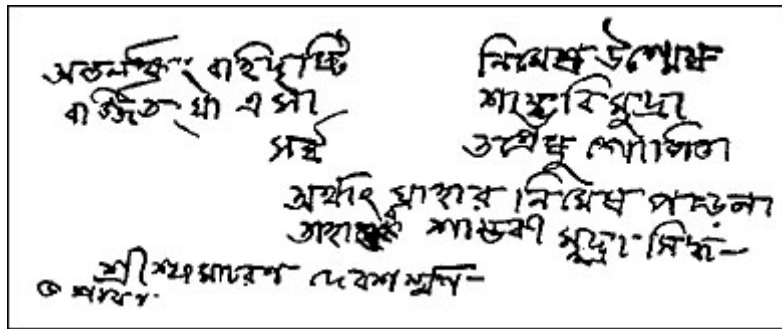 অন্তর্লক্ষ্য বহিদৃষ্টি নিমেষ উন্মেষ
বর্জ্জিত যা এসা শাম্ভবি মুদ্রা
সর্ব্ব তন্ত্রেষু গোপিতা
অর্থাৎ যাহার নিমেষ পড়েনা
তাহারই শাম্ভবী মুদ্রা সিদ্ধ—
শ্রী শ্যামাচরণ দেবশর্ম্মণ—